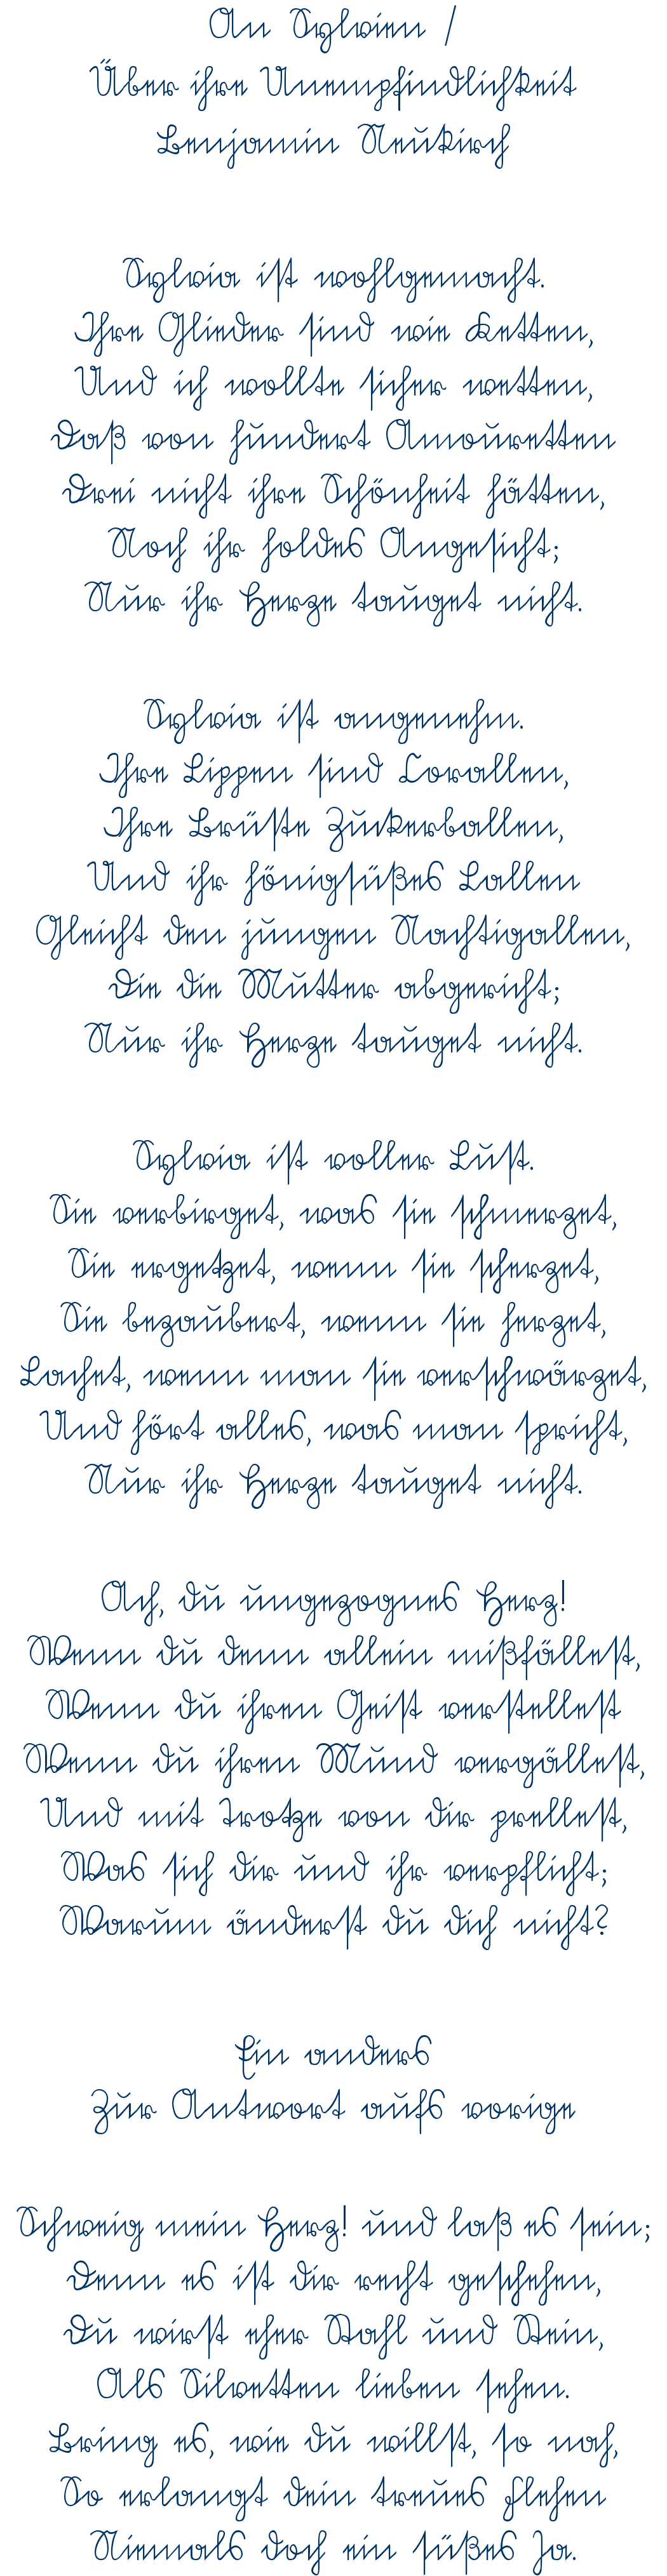 An Sylvien /
Über ihre Unempfindlichkeit
Benjamin Neukirch
Sylvia ist wohlgemacht.
Ihre Glieder sind wie Ketten,
Und ich wollte sicher wetten,
Daß von hundert Amouretten
Drei nicht ihre Schönheit hätten,
Noch ihr holdes Angesicht;
Nur ihr Herze tauget nicht.
Sylvia ist angenehm.
Ihre Lippen sind Corallen,
Ihre Brüste Zuckerballen,
Und ihr hönigsüßes Lallen
Gleicht den jungen Nachtigallen,
Die die Mutter abgericht;
Nur ihr Herze tauget nicht.
Sylvia ist voller Lust.
Sie verbirget, was sie schmerzet,
Sie ergetzet, wenn sie scherzet,
Sie bezaubert, wenn sie herzet,
Lachet, wenn man sie verschwärzet,
Und hört alles, was man spricht,
Nur ihr Herze tauget nicht.
Ach, du ungezognes Herz!
Wenn du denn allein mißfällest,
Wenn du ihren Geist verstellest
Wenn du ihren Mund vergällest,
Und mit Trotze von dir prellest,
Was sich dir und ihr verpflicht;
Warum änderst du dich nicht?
Ein anders
Zur Antwort aufs vorige
Schweig mein Herz! und laß es sein;
Denn es ist dir recht geschehen,
Du wirst eher Stahl und Stein,
Als Silvetten lieben sehen.
Bring es, wie du willst, so nah,
So erlangt dein treues Flehen
Niemals doch ein süßes Ja.